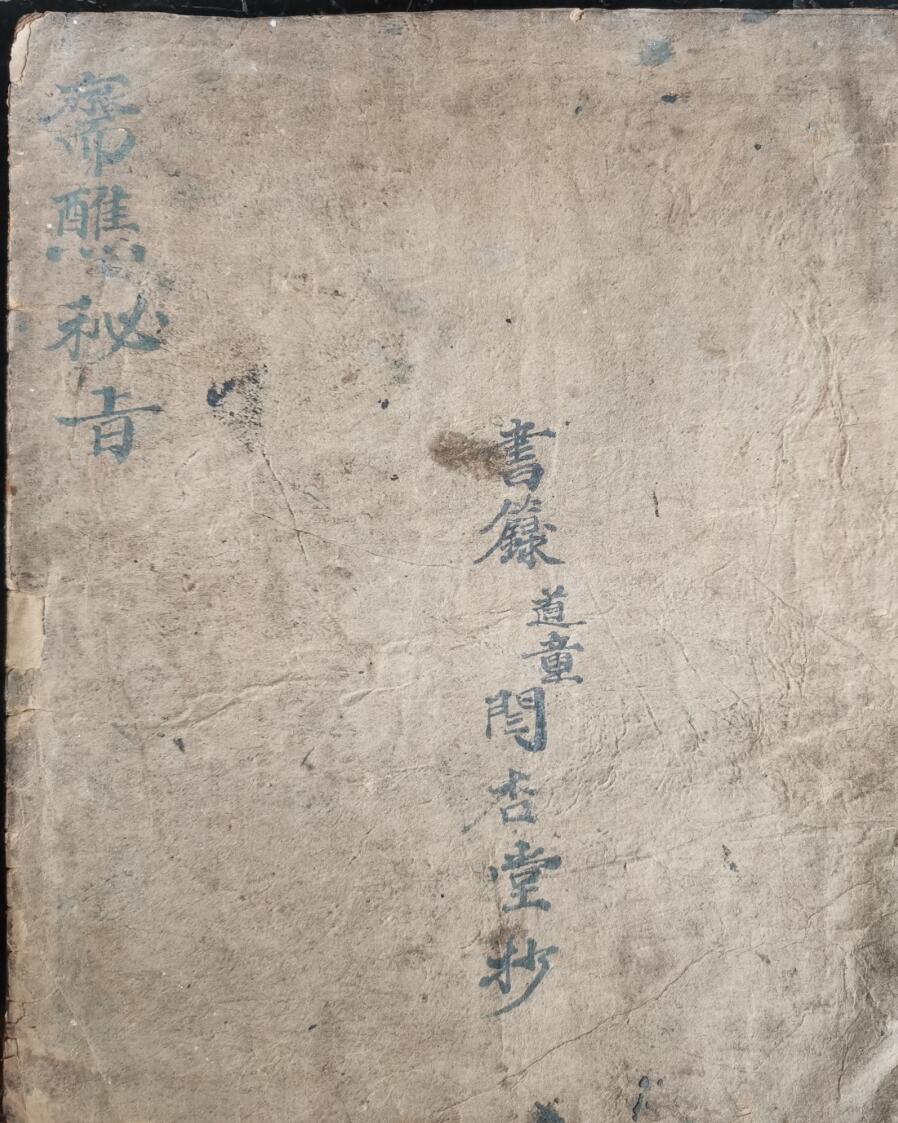 齋醮秘旨
書籙道童閆杏堂抄